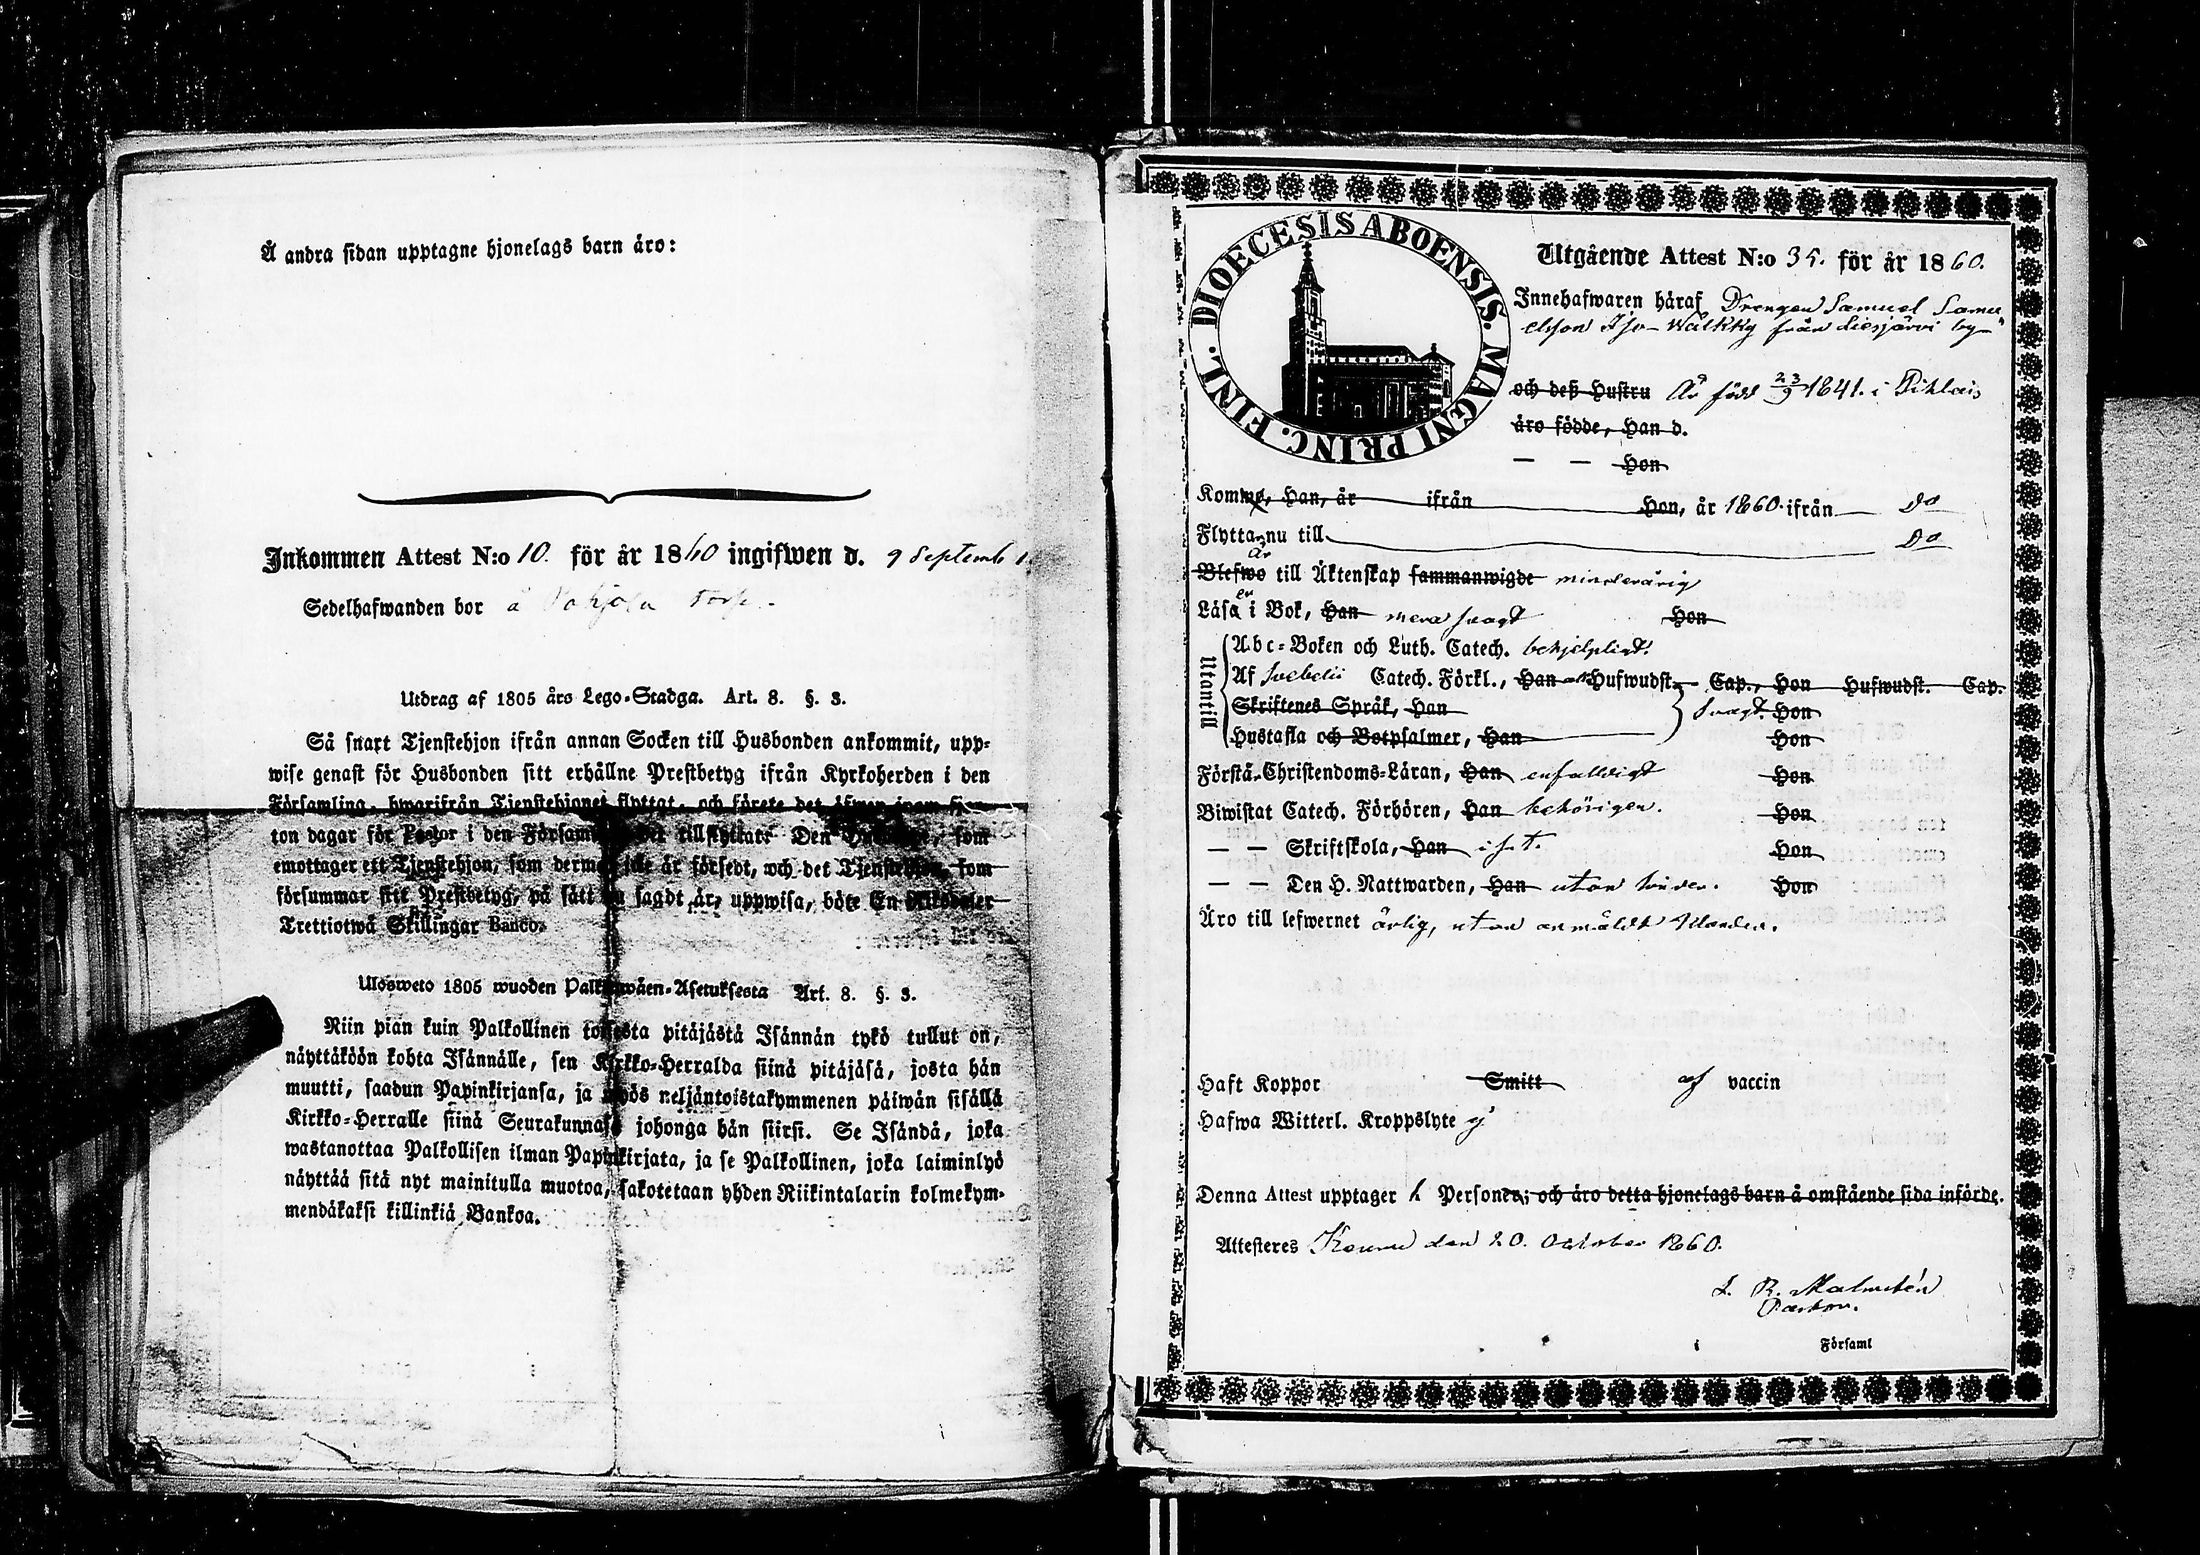 Å andra sidan upptagne hjonelags barn äro:
Inkommen Attest N:o 10. för år 1860 ingifwen d. 9 Septemb
Sedelhafwanden bor å Pohjola torp.
Utdrag af 1805 års Lego-Stadga. Art. 8. §. 3.
Så snart Tjenstehjon ifrån annan Socken till Husbonden ankommit, upp-
wise genast för Husbonden sitt erhållne Prestbetyg ifrån Kyrkoherden i den
Församling, hwarifrån Tjenstehjonet flyttat, och förete det äfwen inom fjor-
ton dagar för Pastor i den Församling det tillflyttat. Den Husbonde, som
emottager ett Tjenstehjon, som dermed icke är försedt, och det Tjenstehjon, som
försummar sitt Prestbetyg, på sätt nu sagdt är, uppwisa, böte En Riksdaler
Trettiotwå Skillingar Banco.
Ulosweto 1805 wuoden Palkkawäen-Asetuksesta Art. 8. §. 3.
Niin pian kuin Palkollinen toisesta pitäjästä Isännän tykö tullut on,
näyttäköön kohta Isännälle, sen Kirkko-Herralda siinä pitäjäsä, josta hän
muutti, saadun Papinkirjansa, ja myös neljäntoistakymmenen päiwän sisällä
Kirkko-Herralle siinä Seurakunnasa johonga hän siirsi. Se Isändä, joka
wastanottaa Palkollisen ilman Papinkirjata, ja se Palkollinen, joka laiminlyö
näyttää sitä nyt mainitulla muotoa, sakotetaan yhden Riikintalarin kolmekym-
mendäkaksi killinkiä Bankoa.
DIOECESIS ABOENSIS. MAGNI PRINC. FINL.
Utgående Attest N:o 35. för år 1860.
Innehafwaren häraf Drengen Samuel Samu-
elsson Iso-Wälkky från Liesjärvi by
och deß Hustru Är född 23/9 1841. i Pihlais
äro födde, Han d.
— — Hon
Komme, Han, år ifrån Hon, år 1860. ifrån Do
Flytta nu till Do
Är
Blefwo till Äktenskap sammanwigde minderårig
Läsa i Bok, Han mera svagt Hon
Utantill
Abc-Boken och Luth. Catech. behjelpligt.
Af Svebelii Catech. Förkl., Han Hufwudst. Cap., Hon Hufwudst. Cap.
Skriftenes Språk, Han svagt. Hon
Hustafla och Botpsalmer, Han Hon
Förstå Christendoms-Läran, Han enfaldigt Hon
Biwistat Catech. Förhören, Han behörigen. Hon
— — Skriftskola, Han Hon
— — Den H. Nattwarden, Han utan hinder. Hon
Äro till lefwernet ärlig, utan anmäldt klander.
Haft Koppor Smitt af vaccin
Hafwa Witterl. Kroppslyte ej
Denna Attest upptager 1 Personer; och äro detta hjonelags barn å omstående sida införde.
Attesteres Keuru den 20. October 1860.
J. R. Malmstén
Pastor.
Församl